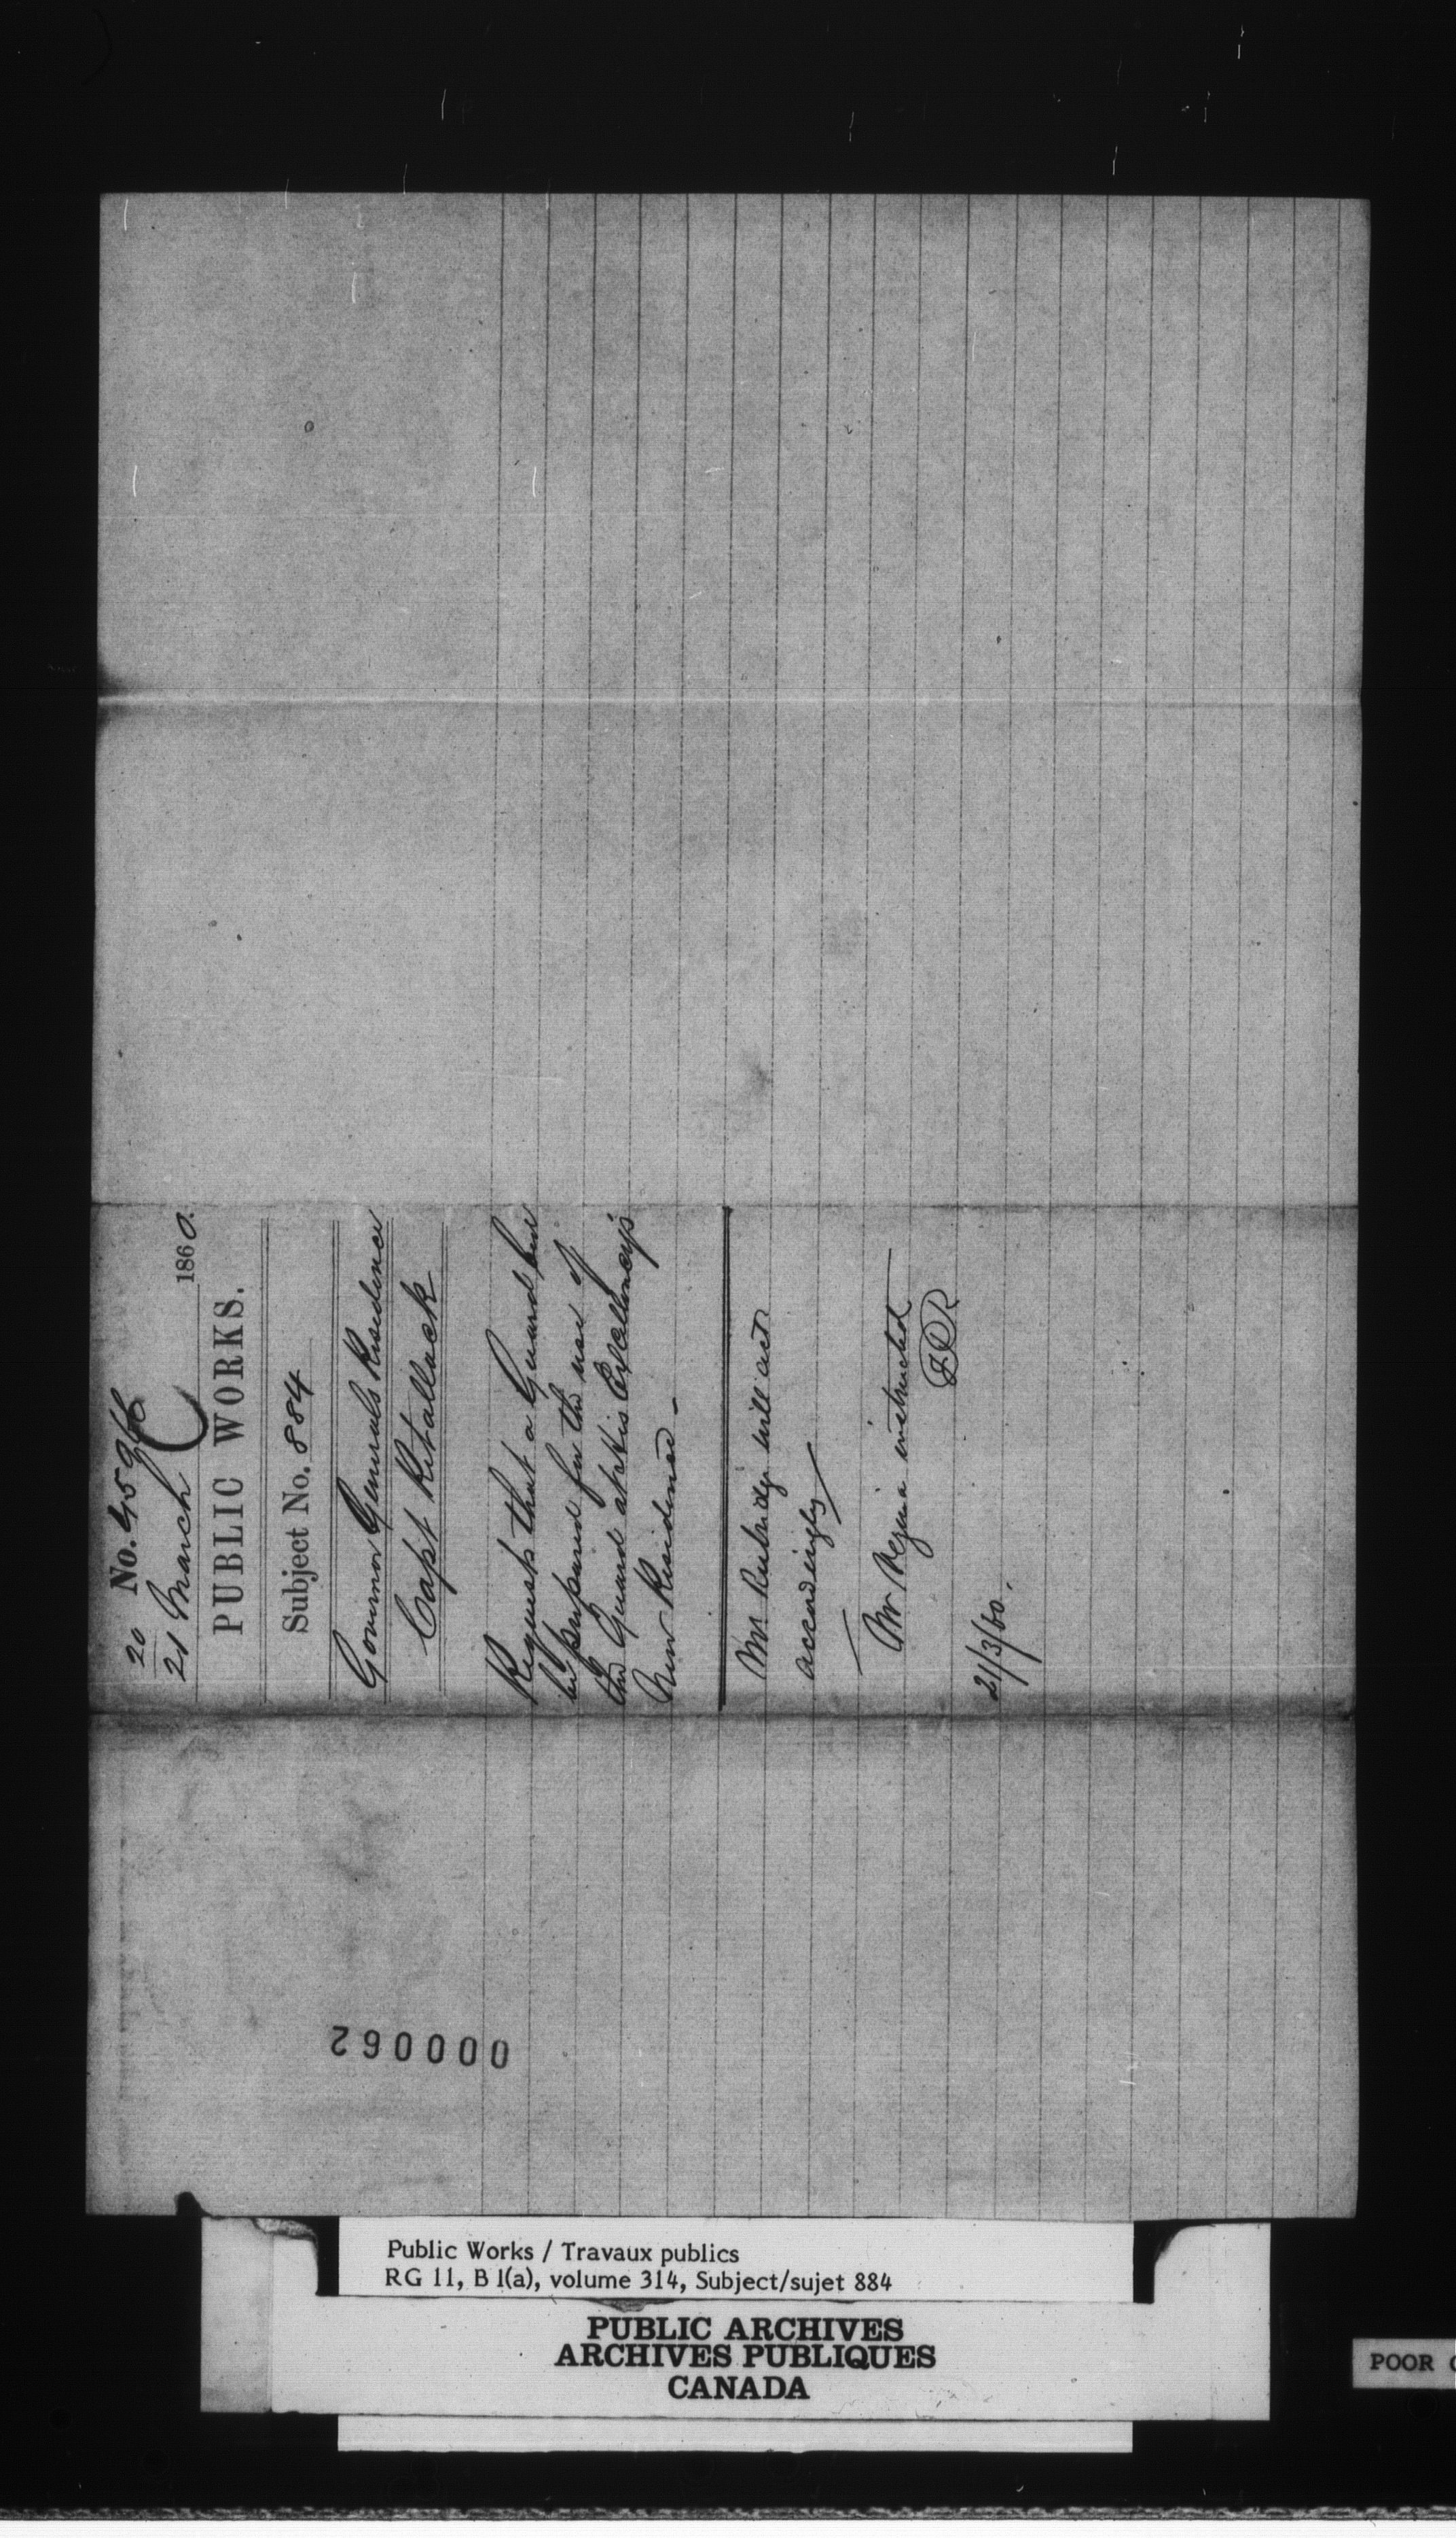 20 No. 45966
21 March 1860.
PUBLIC WORKS.
Subject No. 884
Governor Generals Residence
Capt Retallack
Requests that a Guard
be prepared for the use of
the Guard at His Excellency's
New Residence -
Mr. Rubidge will act
accordingly
Mr instructed
21/3/60.
000062
Public Works / Travaux publics
RG 11, B 1(a), volume 314, Subject/sujet 884
PUBLIC ARCHIVES
ARCHIVES PUBLIQUES
CANADA
POOR